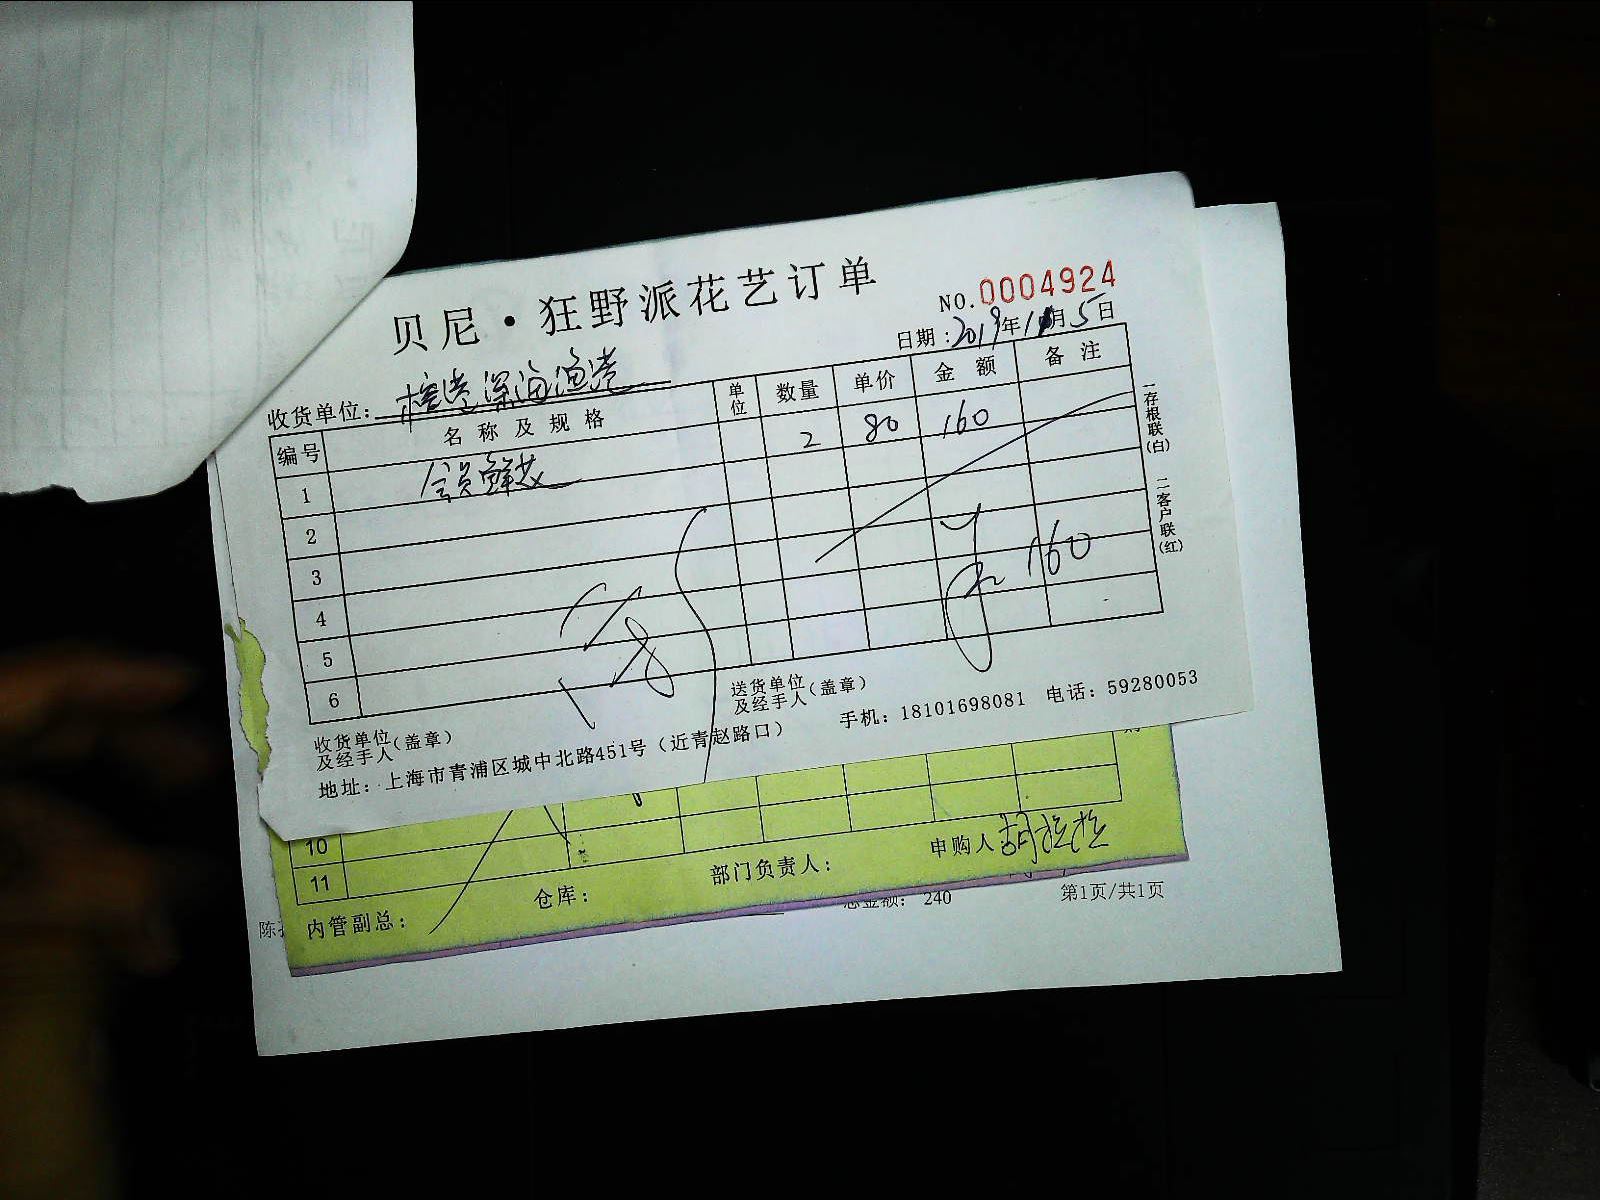 贝尼·狂野派花艺订单
NO.0004924
日期:2019年11月5日
收货单位:深海渔港
编号 名称及规格 单位 数量 单价 金额 备注
1 会员鲜花 2 80 160
2
3
4
5 160
6
一存根联(白) 二客户联(红)
收货单位及经手人(盖章) 送货单位及经手人(盖章)
地址:上海市青浦区城中北路451号(近青赵路口) 手机:18101698081 电话:59280053
10
11
内管副总: 仓库: 部门负责人: 申购人
总金额: 240 第1页/共1页